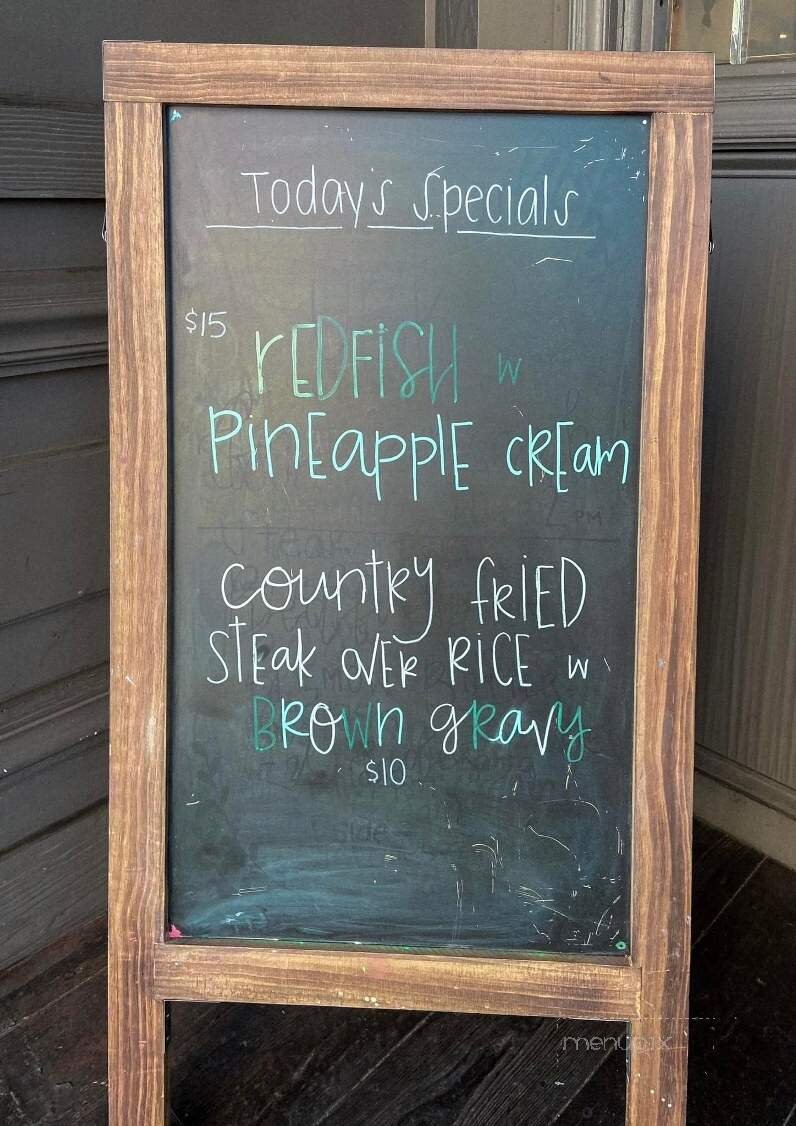 Today's Specials
$15
REDFISH w
PINEAPPLE CREAM
PM
COUNTRY FRIED
STEAK OVER RICE w
BROWN GRAVY
$10
side
menupix